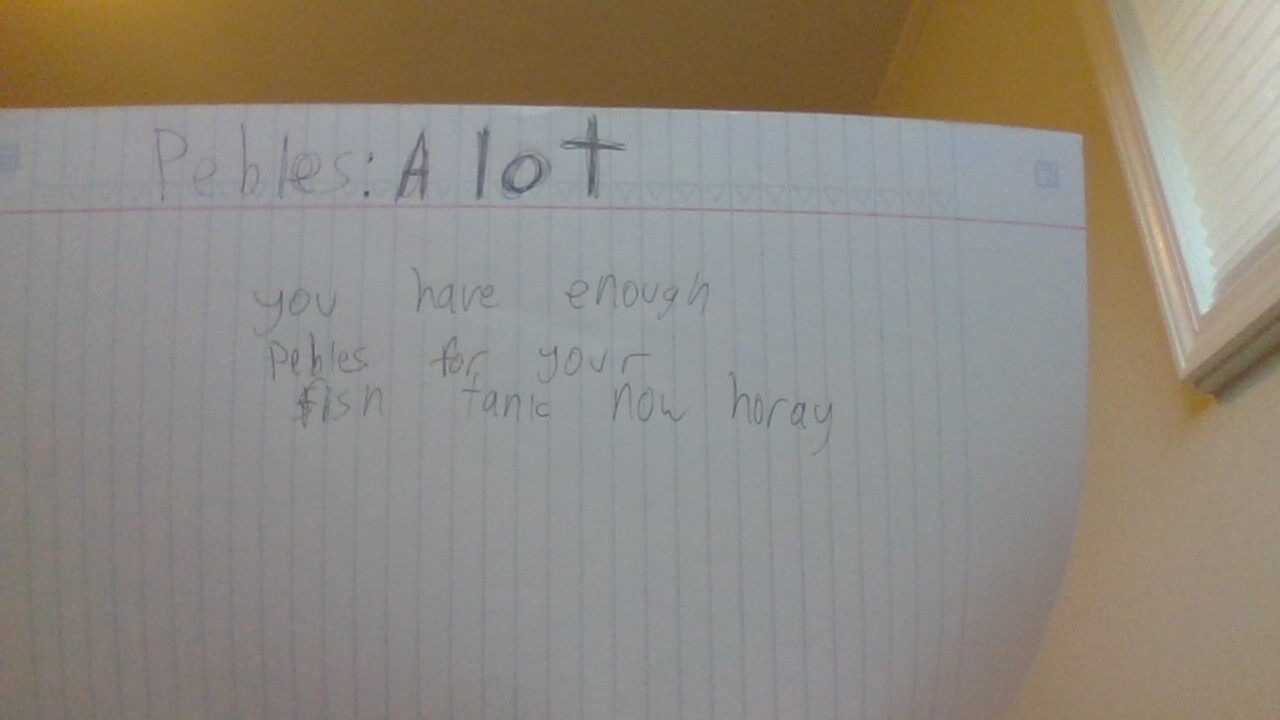 Pebles: A lot
you have enough
Pebles for your
fish tank now horay